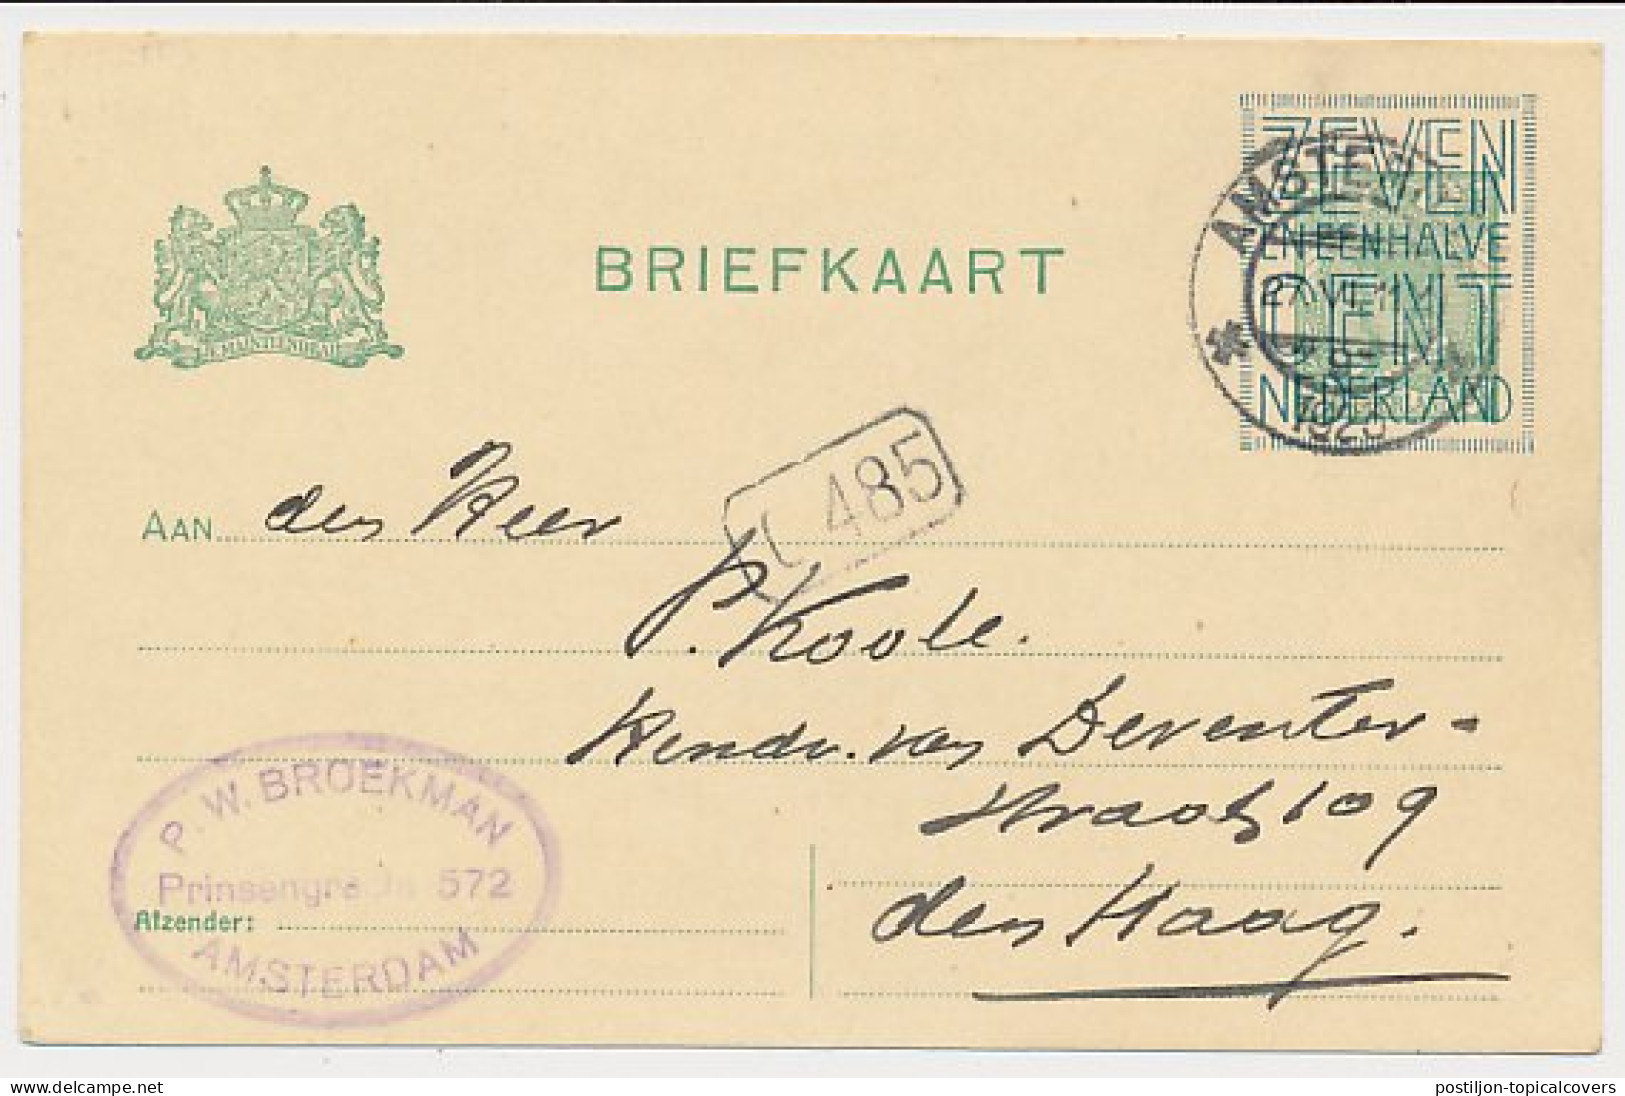 BRIEFKAART
ZEVEN
EN EEN HALVE
CENT
NEDERLAND
AMSTE
27 VII 11
1923
485
JE MAINTIENDRAI
AAN den Heer
P. Koole.
Hendr. van Deventer-
straat 109
den Haag.
P. W. BROEKMAN
Prinsengracht 572
AMSTERDAM
Afzender:
delcampe.net
postiljon-topicalcovers